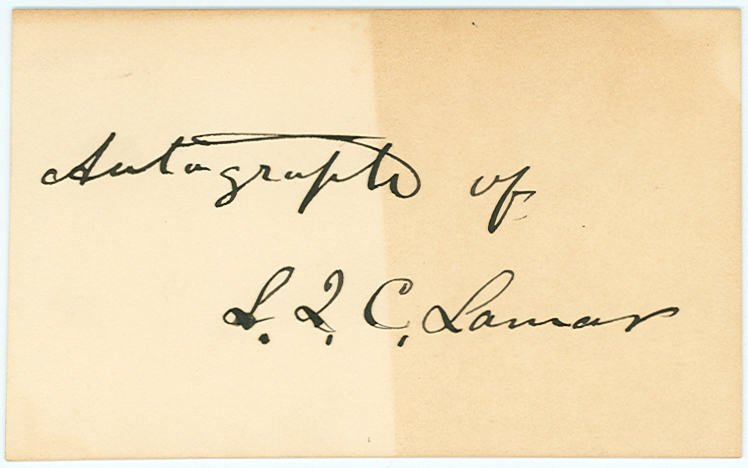 Autograph of
L. Q. C. Lamar